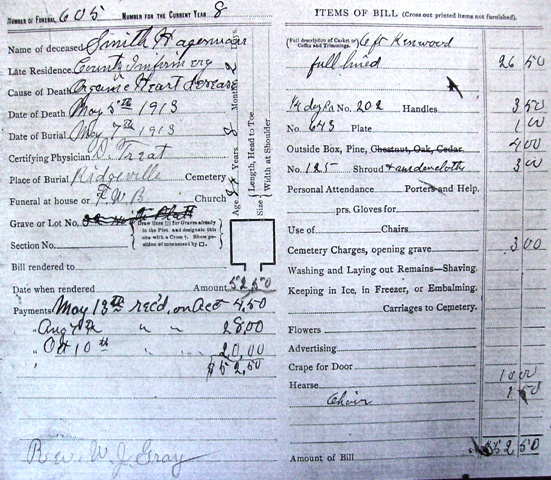 NUMBER OF FUNERAL 605 NUMBER FOR THE CURRENT YEAR 8
Name of deceased Smith Hagerman
Late Residence County Infirmery
Cause of Death Organic Heart Disease
Date of Death May 5th 1913
Date of Burial May 7th 1913
Certifying Physician D. Treat
Place of Burial Ridgeville Cemetery
Funeral at house or F.W.B. Church
Grave or Lot No.
Draw lines for Graves already in the Plot and designate this one with a Cross †. Show position of monument by □.
Section No.
Age Years. 8 Months. 2 Days.
Size { Length, Head to Toe
Width at Shoulder
Bill rendered to
Date when rendered Amount 52.50
Payments May 13th rec'd, on Acc 4.50
" Aug 7th " " 28.00
" Oct 10th " " 20.00
$52.50
Rev. W. J. Gray
ITEMS OF BILL (Cross out printed items not furnished).
(Full description of Casket or Coffin and Trimmings. 6 ft Kenwood
full lined 26 50
No. 202 Handles 3 50
No. 643 Plate 1 00
Outside Box, Pine, Chestnut, Oak, Cedar. 4 00
No. 125 Shroud & underclothes 3 00
Personal Attendance Porters and Help.
prs. Gloves for
Use of Chairs
Cemetery Charges, opening grave 3 00
Washing and Laying out Remains—Shaving.
Keeping in Ice, in Freezer, or Embalming.
Carriages to Cemetery.
Flowers
Advertising
Crape for Door
Hearse 10 00
Choir 1 50
Amount of Bill $52 50